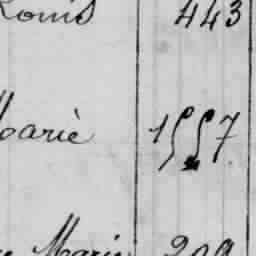 Louis 443
Marie 1557
Marie 209